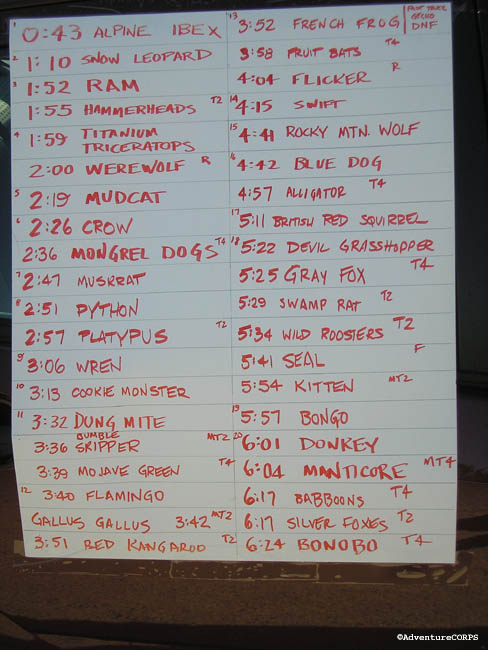 1 0:43 ALPINE IBEX
2 1:10 SNOW LEOPARD
3 1:52 RAM
1:55 HAMMERHEADS T2
4 1:59 TITANIUM
TRICERATOPS
2:00 WEREWOLF R
5 2:19 MUDCAT
6 2:26 CROW
2:36 MONGREL DOGS T4
7 2:47 MUSKRAT
8 2:51 PYTHON
2:57 PLATYPUS T2
9 3:06 WREN
10 3:13 COOKIE MONSTER
11 3:32 DUNG MITE
BUMBLE
3:36 SKIPPER MT2
3:39 MOJAVE GREEN T4
12 3:40 FLAMINGO
GALLUS GALLUS 3:42 MT2
3:51 RED KANGAROO T2
13 3:52 FRENCH FROG
GECKO
DNF
3:58 FRUIT BATS T4
4:04 FLICKER R
14 4:15 SWIFT
15 4:41 ROCKY MTN. WOLF
16 4:42 BLUE DOG
4:57 ALLIGATOR T4
17 5:11 BRITISH RED SQUIRREL
18 5:22 DEVIL GRASSHOPPER
5:25 GRAY FOX T4
5:29 SWAMP RAT T2
5:34 WILD ROOSTERS T2
5:41 SEAL F
5:54 KITTEN MT2
19 5:57 BONGO
20 6:01 DONKEY
6:04 MANTICORE MT4
6:17 BABBOONS T4
6:17 SILVER FOXES T2
6:24 BONOBO T4
©AdventureCORPS